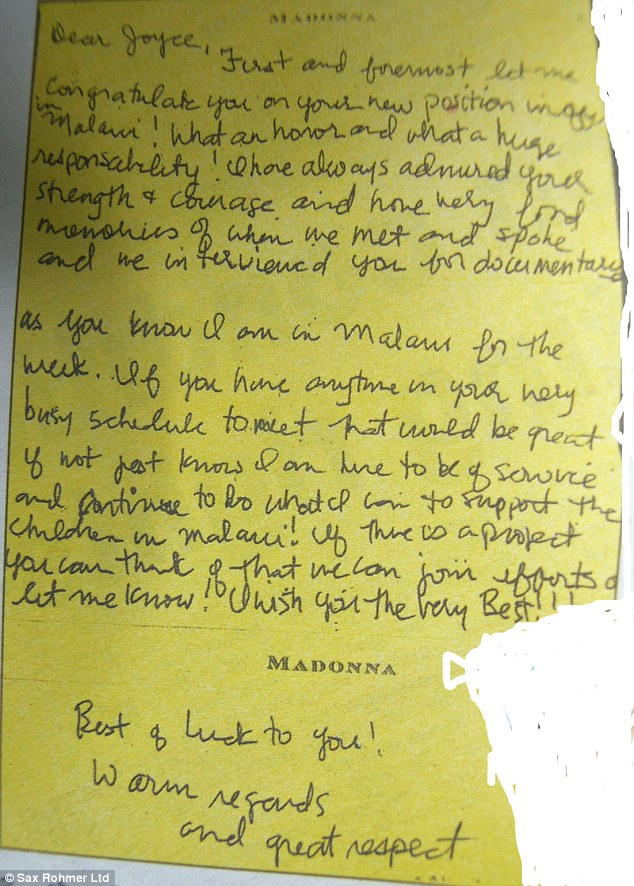 MADONNA
Dear Joyce,
First and foremost let me
Congratulate you on your new position in
in Malawi! What an honor and what a huge
responsability! I have always admired your
strength & courage and have very fond
memories of when we met and spoke
and we interviewed you for documentary
as you know I am in Malawi for the
week. If you have anytime in your very
busy schedule to meet that would be great
if not just know I am here to be of service
and continue to do what I can to support the
children in Malawi! If there is a project
you can think of that we can join efforts
let me know! I wish you the very Best!!!
MADONNA
Best of luck to you!
Warm regards
and great respect
© Sax Rohmer Ltd